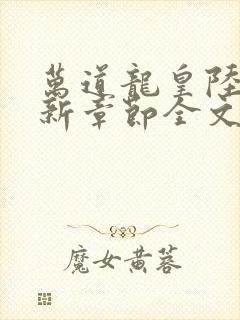 萬道龍皇陸
新章節全文
魔女黄蓉